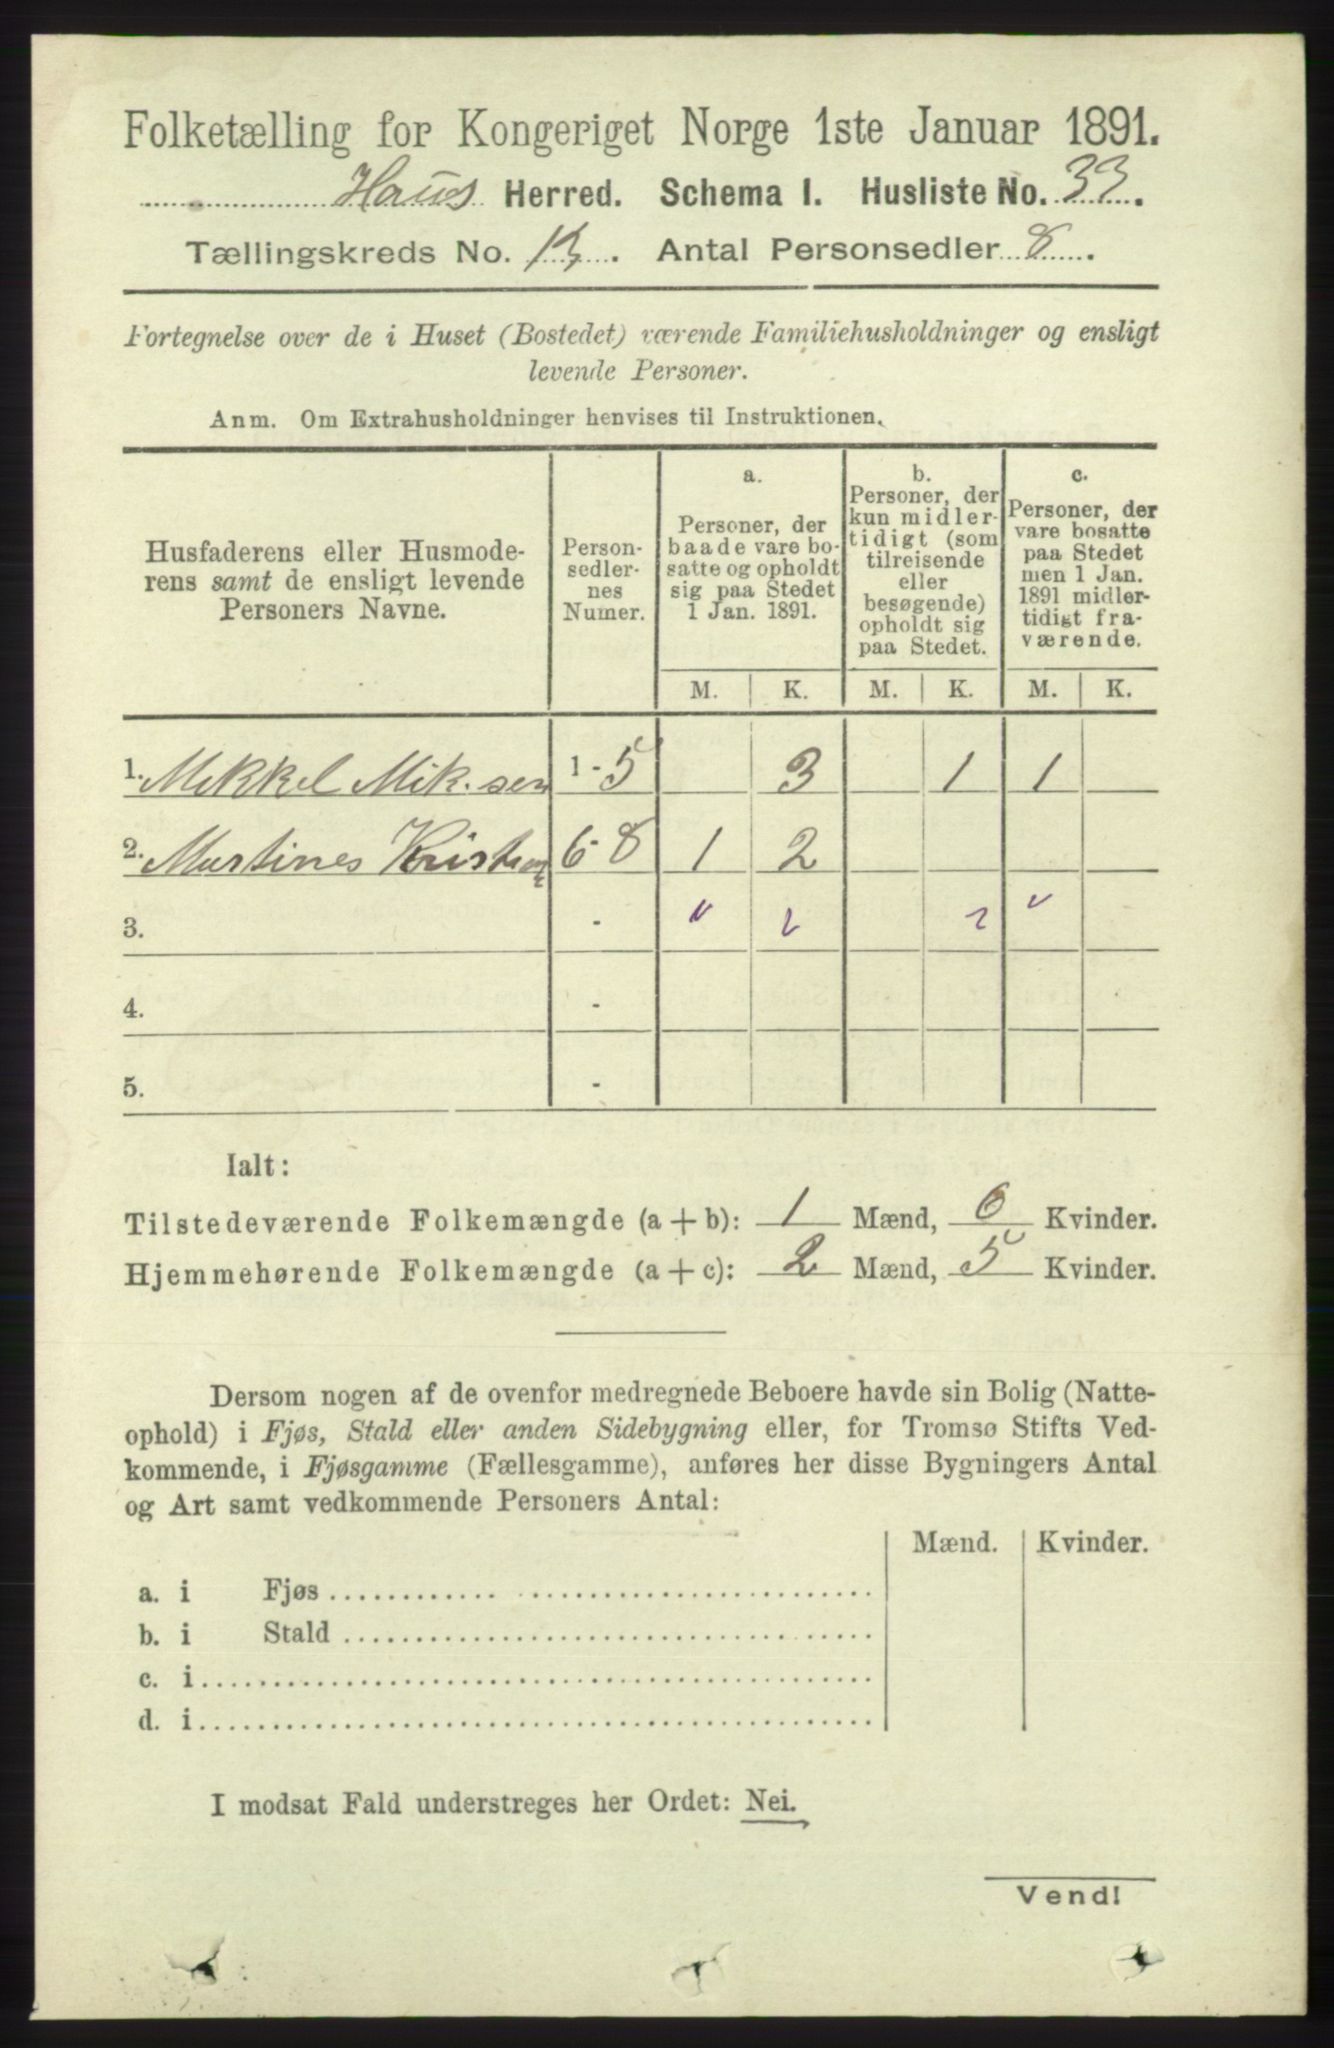 Folketælling for Kongeriget Norge 1ste Januar 1891.
Haus Herred. Schema I. Husliste No. 33.
Tællingskreds No. 13. Antal Personsedler 8.
Fortegnelse over de i Huset (Bostedet) værende Familiehusholdninger og ensligt
levende Personer.
Anm. Om Extrahusholdninger henvises til Instruktionen.
Husfaderens eller Husmode-
rens samt de ensligt levende
Personers Navne.
Person-
sedler-
nes
Numer.
a.
Personer, der
baade vare bo-
satte og opholdt
sig paa Stedet
1 Jan. 1891.
b.
Personer, der
kun midler-
tidigt (som
tilreisende
eller
besøgende)
opholdt sig
paa Stedet.
c.
Personer, der
vare bosatte
paa Stedet
men 1 Jan.
1891 midler-
tidigt fra-
værende.
M. K. M. K. M. K.
1. Mikkel Mik.sen 1-5 3 1 1
2. Martines 6-8 1 2
3. -
4. -
5. -
Ialt:
Tilstedeværende Folkemængde (a + b): 1 Mænd, 6 Kvinder.
Hjemmehørende Folkemængde (a + c): 2 Mænd, 5 Kvinder.
Dersom nogen af de ovenfor medregnede Beboere havde sin Bolig (Natte-
ophold) i Fjøs, Stald eller anden Sidebygning eller, for Tromsø Stifts Ved-
kommende, i Fjøsgamme (Fællesgamme), anføres her disse Bygningers Antal
og Art samt vedkommende Personers Antal:
Mænd. Kvinder.
a. i Fjøs
b. i Stald
c. i
d. i
I modsat Fald understreges her Ordet: Nei.
Vend!